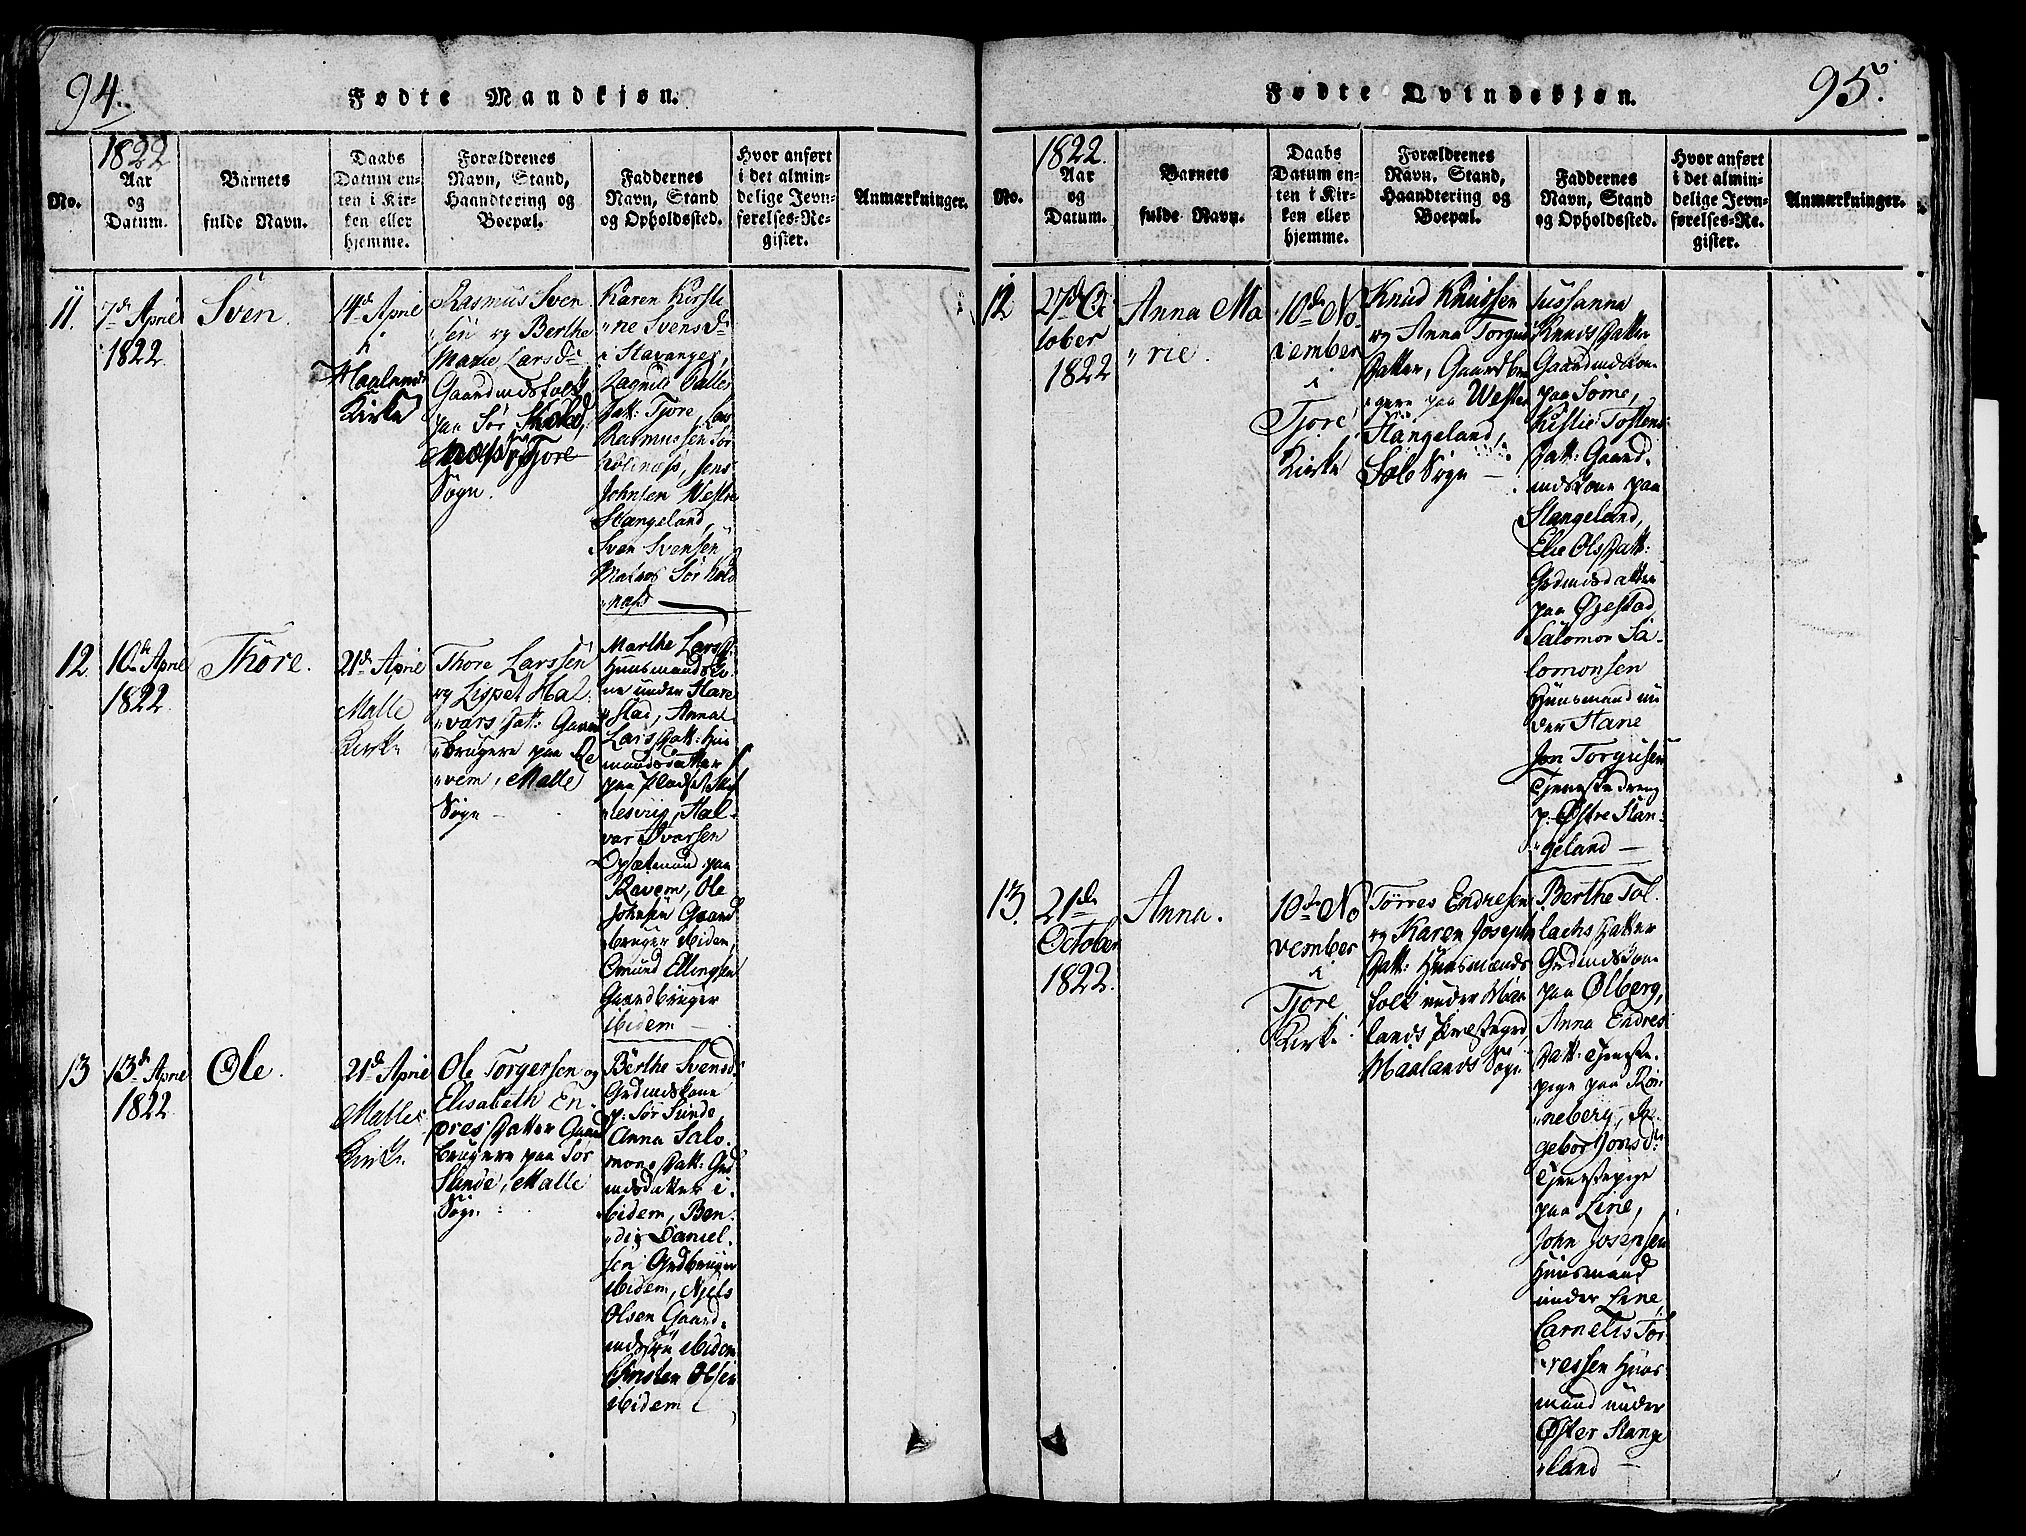 94.
Fødte Mandkjøn.
No.
1822
Aar
og
Datum.
Barnets
fulde Navn.
Daabs
Datum en-
ten i Kir-
ken eller
hjemme.
Forældrenes
Navn, Stand,
Haandtering og
Boepæl.
Faddernes
Navn, Stand
og Opholdssted.
Hvor anført
i det almin-
delige Jevn-
førelses-Re-
gister.
Anmærkninger.
11.
7de April
1822
Sven.
14de April
i
Haalands
Kirke
Rasmus Sven
sen og Berthe
Marie Larsdr
Gaardmdsfolk
paa Sør Kold
næss Tjore
Sogn.
Karen Kirsti
ne Svensdr
i Stavanger,
Ragnild Valles
Datt: Tjore, Lars
Rasmussen Sør
Koldnæss, Jens
Johnsen Westre
Stangeland,
Sven Svensen
Matros Sør Kold
næss
12.
10de April
1822.
Thore.
21de April
Malle
Kirke
Thore Larssen
og Lispet Hal
vars Datt: Gaard
brugere paa Re
vem, Malle
Sogn
Marthe Larsd:
Huusmandsko
ne under Hare
stad, Anna
Lars Datt: Huus
mandsdatter
paa Pladset
lesvig, Hal
var Ivarsen
Opsætmand paa
Ravem, Ole
Johnsen Gaard
bruger ibidem,
Omund Ellingsen
Gaardbruger
ibidem
13
13de April
1822
Ole.
21de April
Malle
Kirke.
Ole Torgersen og
Elisabeth En
dres Datter Gaard
brugere paa Sør
Sunde, Malle
Sogn
Berthe Svensd:
Grdmdskone
p: Sør Sunde,
Anna Salo
mons Datt: Grd
mdsdatter i
bidem, Ben
dix Daniel
sen Grdbruger
ibidem, Njels
Olsen Gaard
mdssøn ibidem
Christen Olsen
ibidem
95.
Fødte Qvindekjøn.
No.
1822.
Aar
og
Datum.
Barnets
fulde Navn.
Daabs
Datum en-
ten i Kir-
ken eller
hjemme.
Forældrenes
Navn, Stand,
Haandtering og
Boepæl.
Faddernes
Navn, Stand
og Opholdssted.
Hvor anført
i det almin-
delige Jevn-
førelses-Re-
gister.
Anmærkninger.
12
27de Oc
tober
1822
Anna Ma
rie.
10de No
vember
i
Tjore
Kirke
Knud Knudsen
og Anna Torgus
Datter, Gaardbru
gere paa Wester
Stangeland,
Sole Sogn
Sussanna
Knuds Datter
Gaardmdskone
paa Sømme,
Kistie Tostens
Datt: Gaard
mdskone paa
Stangeland,
Elie Ols Datt:
Grdmdsdatter
paa Øjestad,
Salomon Sa
lomonsen
Huusmand un
der Hane
Jon Torgusen
Tjenestedreng
p: Østre Stan
geland
13.
21de
October
1822.
Anna.
10de No
vember
i
Tjore
Kirke
Tørres Endresen
og Karen Joseph
Datt: Huusmands
folk under Haa
lands Præstegrd,
Haalands Sogn
Berthe Tol
lachs Datter
Grdmdskone
paa Ølberg,
Anna Endres
Datt: Tjeneste
pige paa Røn
neberg, In
gebor Jonsdr:
Tjenestepige
paa Line,
John Josepsen
Huusmand
under Line
Cornelis Tør
ressen Huus
mand under
Øster Stange
land